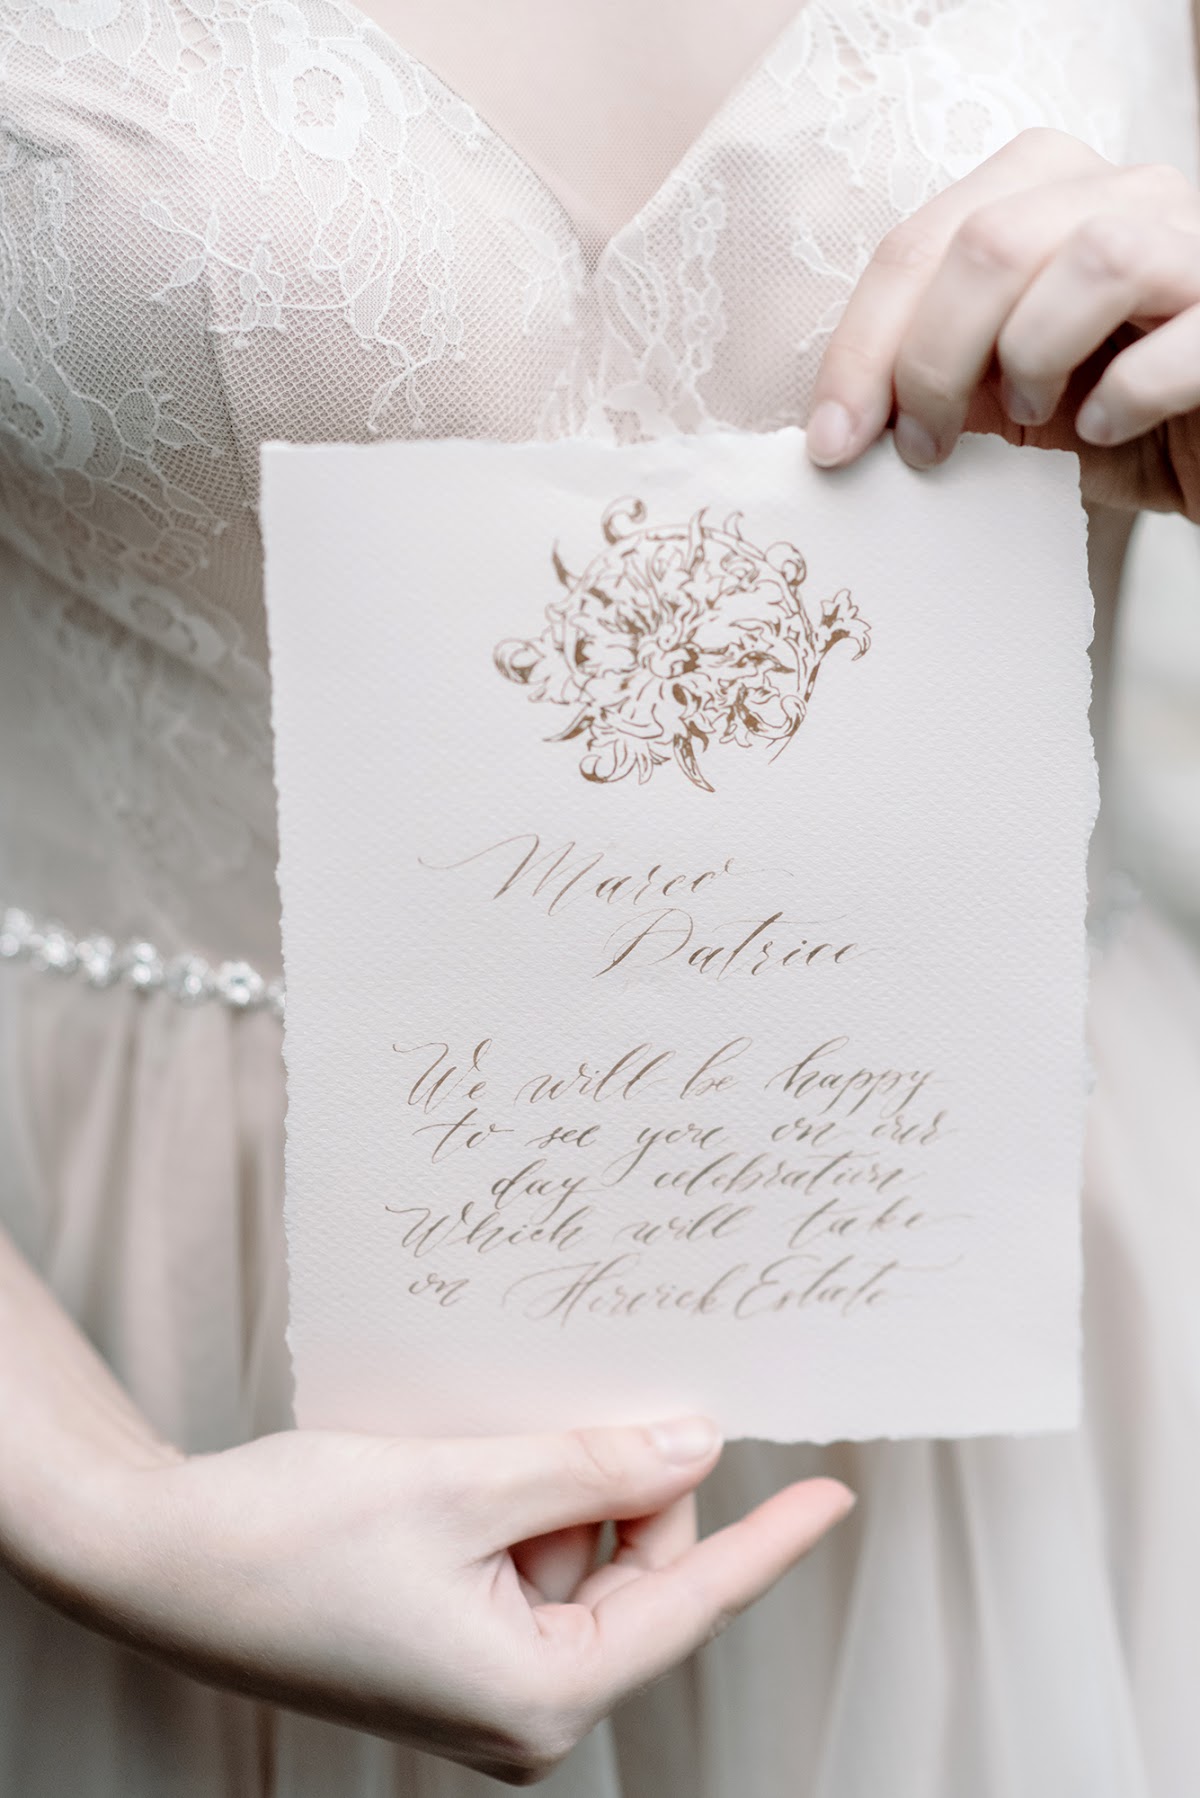 Marco
Patrice
We will be happy
to see you on our
day celebration
Which will take
on Estate